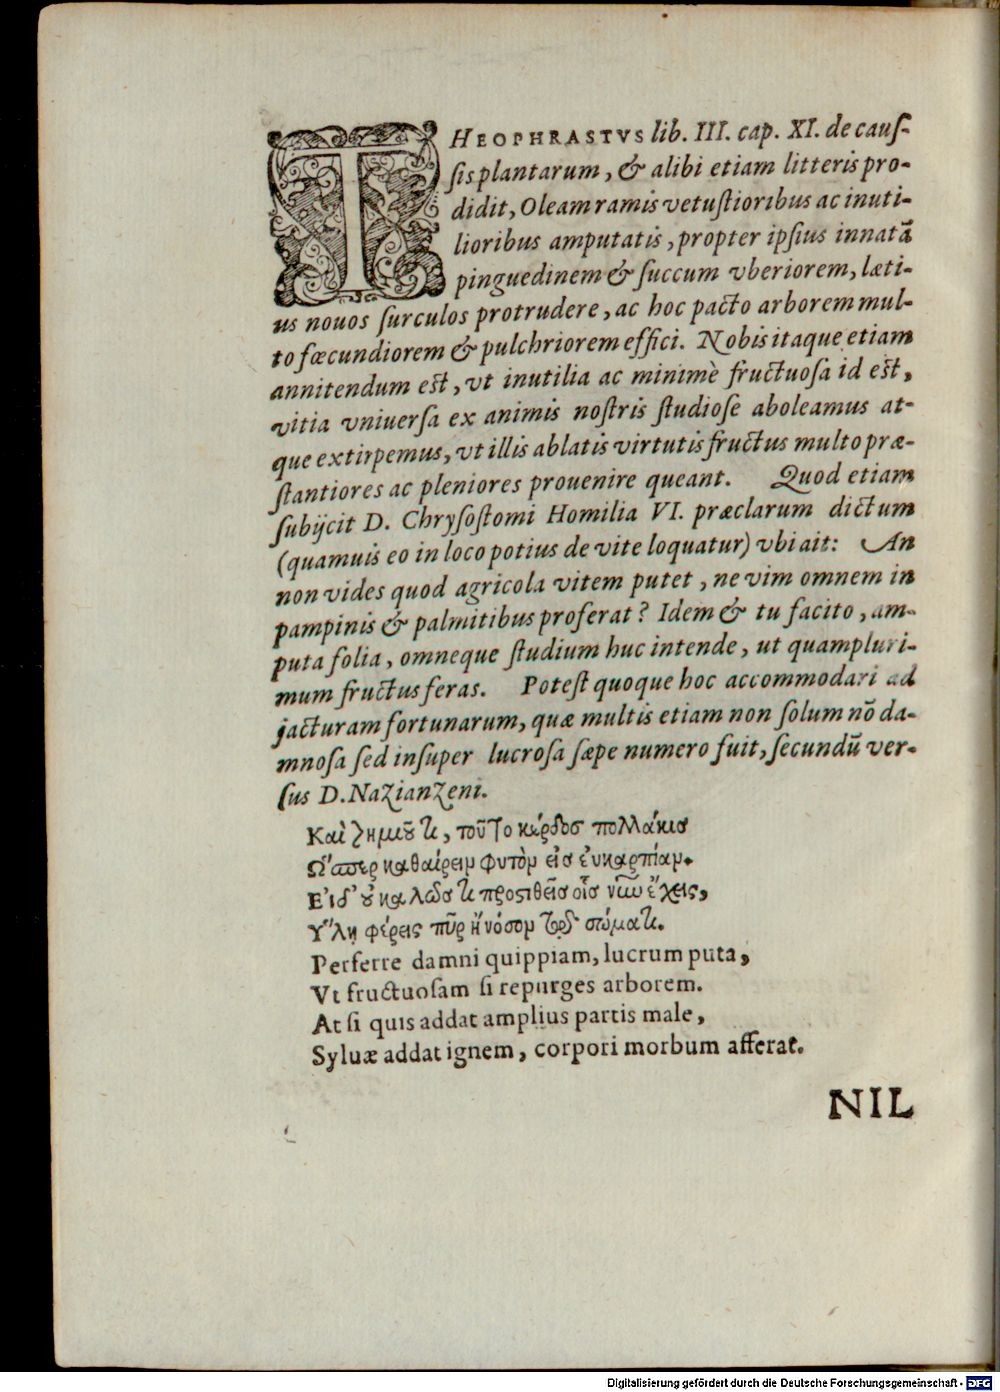 THEOPHRASTVS lib. III. cap. XI. de cauſ-
ſis plantarum, & alibi etiam litteris pro-
didit, Oleam ramis vetuſtioribus ac inuti-
lioribus amputatis, propter ipſius innatã
pinguedinem & ſuccum vberiorem, læti-
us nouos ſurculos protrudere, ac hoc pacto arborem mul-
to fœcundiorem & pulchriorem effici. Nobis itaque etiam
annitendum eſt, vt inutilia ac minimè fructuoſa id eſt,
vitia vniuerſa ex animis noſtris ſtudioſe aboleamus at-
que extirpemus, vt illis ablatis virtutis fructus multo præ-
ſtantiores ac pleniores prouenire queant. Quod etiam
ſubijcit D. Chryſoſtomi Homilia VI. præclarum dictum
(quamuis eo in loco potius de vite loquatur) vbi ait: An
non vides quod agricola vitem putet, ne vim omnem in
pampinis & palmitibus proferat? Idem & tu facito, am-
puta folia, omneque ſtudium huc intende, ut quampluri-
mum fructus feras. Poteſt quoque hoc accommodari ad
jacturam fortunarum, quæ multis etiam non ſolum nõ da-
mnoſa ſed inſuper lucroſa ſæpe numero fuit, ſecundũ ver-
ſus D. Nazianzeni.
Καὶ ζημιοῦ τι, τοῦτο κέρδος πολλάκις
Ὥσπερ καθαίρειν φυτὸν εἰς ἐυκαρπίαν.
Εἰ δ' οὐ καλῶς τι προςτιθεῖς οἷς νῦν ἔχεις,
Ὕλη φέρεις πῦρ ἢ νόσον τῷ σώματι.
Perferre damni quippiam, lucrum puta,
Vt fructuoſam ſi repurges arborem.
At ſi quis addat amplius partis male,
Syluæ addat ignem, corpori morbum afferat.
NIL
Digitalisierung gefördert durch die Deutsche Forschungsgemeinschaft - DFG